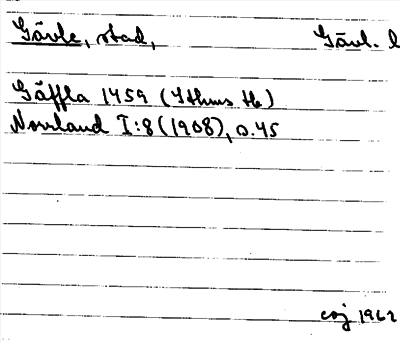 Gävle, stad, Gävl. l
Gäffla 1459 (Styffe)
Norrland I:8 (1908), s. 45
1962